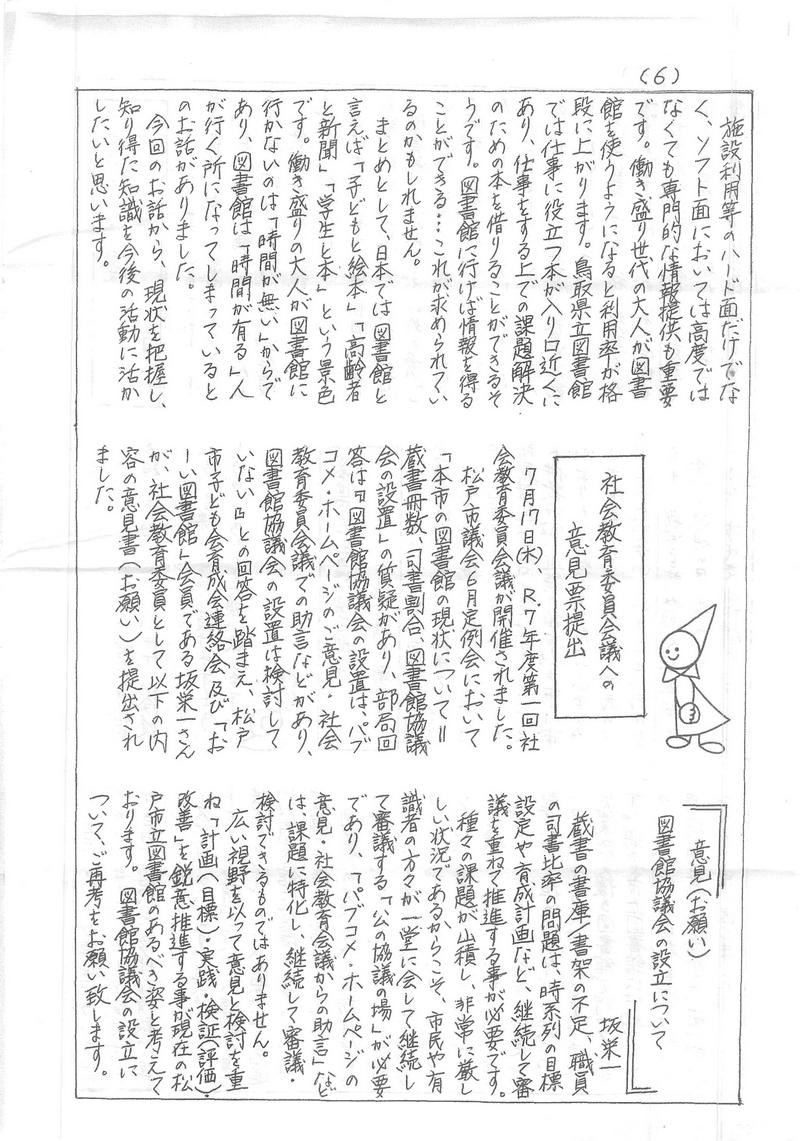 (6)
施設利用等のハード面だけでな
く、ソフト面においては高度では
なくても専門的な情報提供も重要
です。働き盛り世代の大人が図書
館を使うようになると利用率が格
段に上がります。鳥取県立図書館
では仕事に役立つ本が入り口近くに
あり、仕事をする上での課題解決
のための本を借りることができるそ
うです。図書館に行けば情報を得る
ことができる…これが求められてい
るのかもしれません。
まとめとして、日本では図書館と
言えば「子どもと絵本」「高齢者
と新聞」「学生と本」という景色
です。働き盛りの大人が図書館に
行かないのは「時間が無い」からで
あり、図書館は「時間が有る」人
が行く所になってしまっていると
のお話がありました。
今回のお話から、現状を把握し、
知り得た知識を今後の活動に活か
したいと思います。
社会教育委員会議への
意見票提出
7月17日(木)、R.7年度第一回社
会教育委員会議が開催されました。
松戸市議会6月定例会において
「本市の図書館の現状について＝
蔵書冊数、司書割合、図書館協議
会の設置」の質疑があり、部局回
答は『図書館協議会の設置は、パブ
コメ・ホームページのご意見・社会
教育委員会議での助言などがあり、
図書館協議会の設置は検討して
いない』との回答を踏まえ、松戸
市子ども会育成会連絡会及び「お
ーい図書館」会員である坂栄一さん
が、社会教育委員として以下の内
容の意見書(お願い)を提出され
ました。
意見(お願い)
図書館協議会の設立について
坂栄一
蔵書の書庫/書架の不足、職員
の司書比率の問題は、時系列の目標
設定や育成計画など、継続して審
議を重ねて推進する事が必要です。
種々の課題が山積し、非常に厳し
しい状況であるからこそ、市民や有
識者の方々が一堂に会して継続し
て審議する「公の協議の場」が必要
であり、「パブコメ・ホームページの
意見・社会教育会議からの助言」など
は、課題に特化し、継続して審議・
検討できるものではありません。
広い視野を以って意見と検討を重
ね「計画(目標)・実践・検証(評価)・
改善」を鋭意推進する事が現在の松
戸市立図書館のあるべき姿と考えて
おります。図書館協議会の設立に
ついて、ご再考をお願い致します。